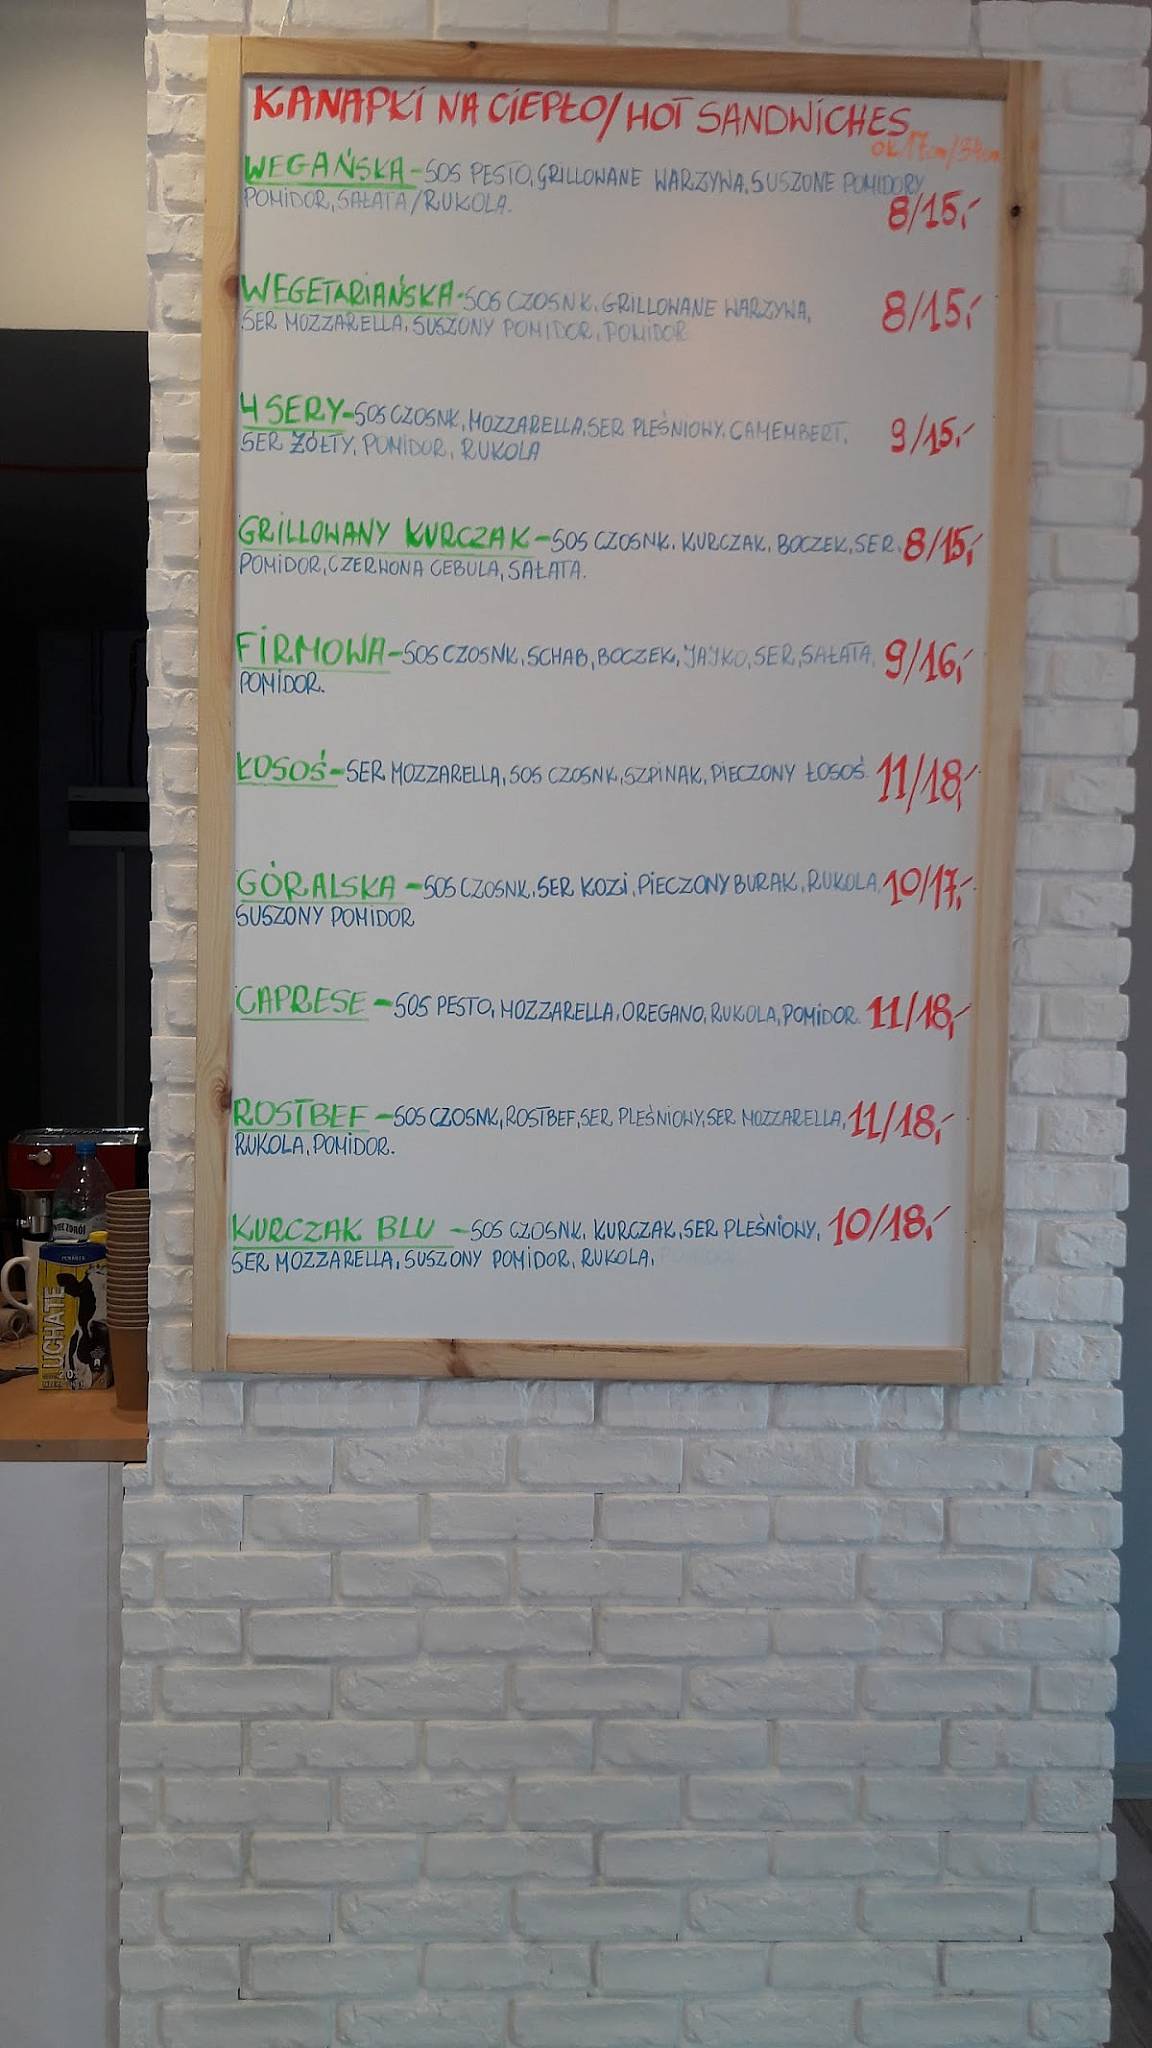 KANAPKI NA CIEPŁO/HOT SANDWICHES
ok 17cm/34cm
WEGAŃSKA-SOS PESTO, GRILLOWANE WARZYWA, SUSZONE POMIDORY
POMIDOR, SAŁATA/RUKOLA.
8/15,-
WEGETARIAŃSKA-SOS CZOSNK. GRILLOWANE WARZYWA, 8/15,-
SER MOZZARELLA, SUSZONY POMIDOR, POMIDOR
4 SERY-SOS CZOSNK, MOZZARELLA, SER PLEŚNIOWY. CAMEMBERT, 9/15,-
SER ŻÓŁTY, POMIDOR, RUKOLA
GRILLOWANY KURCZAK-SOS CZOSNK. KURCZAK, BOCZEK, SER, 8/15,-
POMIDOR, CZERWONA CEBULA, SAŁATA.
FIRMOWA-SOS CZOSNK, SCHAB, BOCZEK, JAJKO, SER, SAŁATA, 9/16,-
POMIDOR.
ŁOSOŚ-SER MOZZARELLA, SOS CZOSNK, SZPINAK, PIECZONY ŁOSOŚ 11/18,-
GÓRALSKA-SOS CZOSNK, SER KOZI, PIECZONY BURAK, RUKOLA, 10/17,-
SUSZONY POMIDOR
CAPRESE-SOS PESTO, MOZZARELLA, OREGANO, RUKOLA, POMIDOR. 11/18,-
ROSTBEF-SOS CZOSNK, ROSTBEF, SER PLEŚNIOWY, SER MOZZARELLA, 11/18,-
RUKOLA, POMIDOR.
KURCZAK BLU-SOS CZOSNK. KURCZAK, SER PLEŚNIOWY, 10/18,-
SER MOZZARELLA, SUSZONY POMIDOR, RUKOLA,
UCHATE